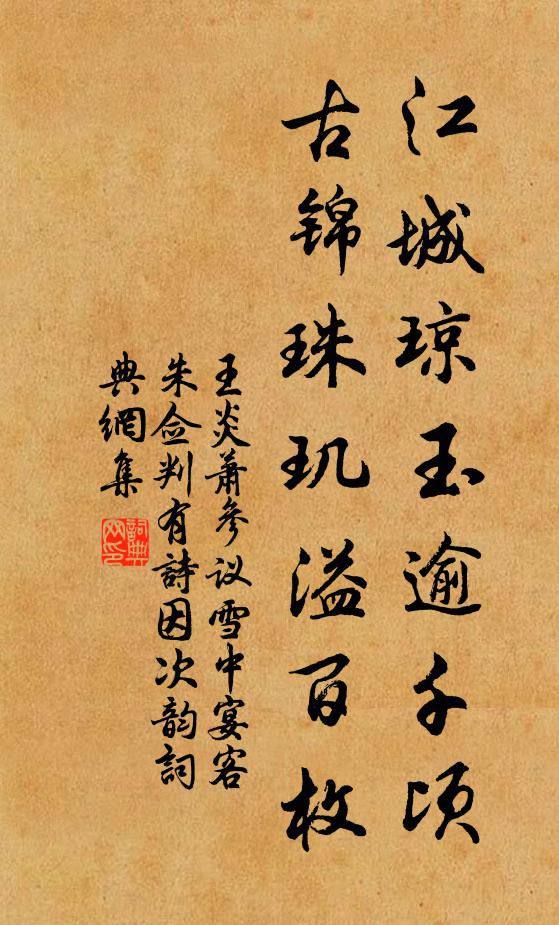 江城琼玉逾千顷
古锦珠玑溢百枚
王炎萧参议雪中宴客
朱佥判有詩因次韵詞
典網集
詞典网印